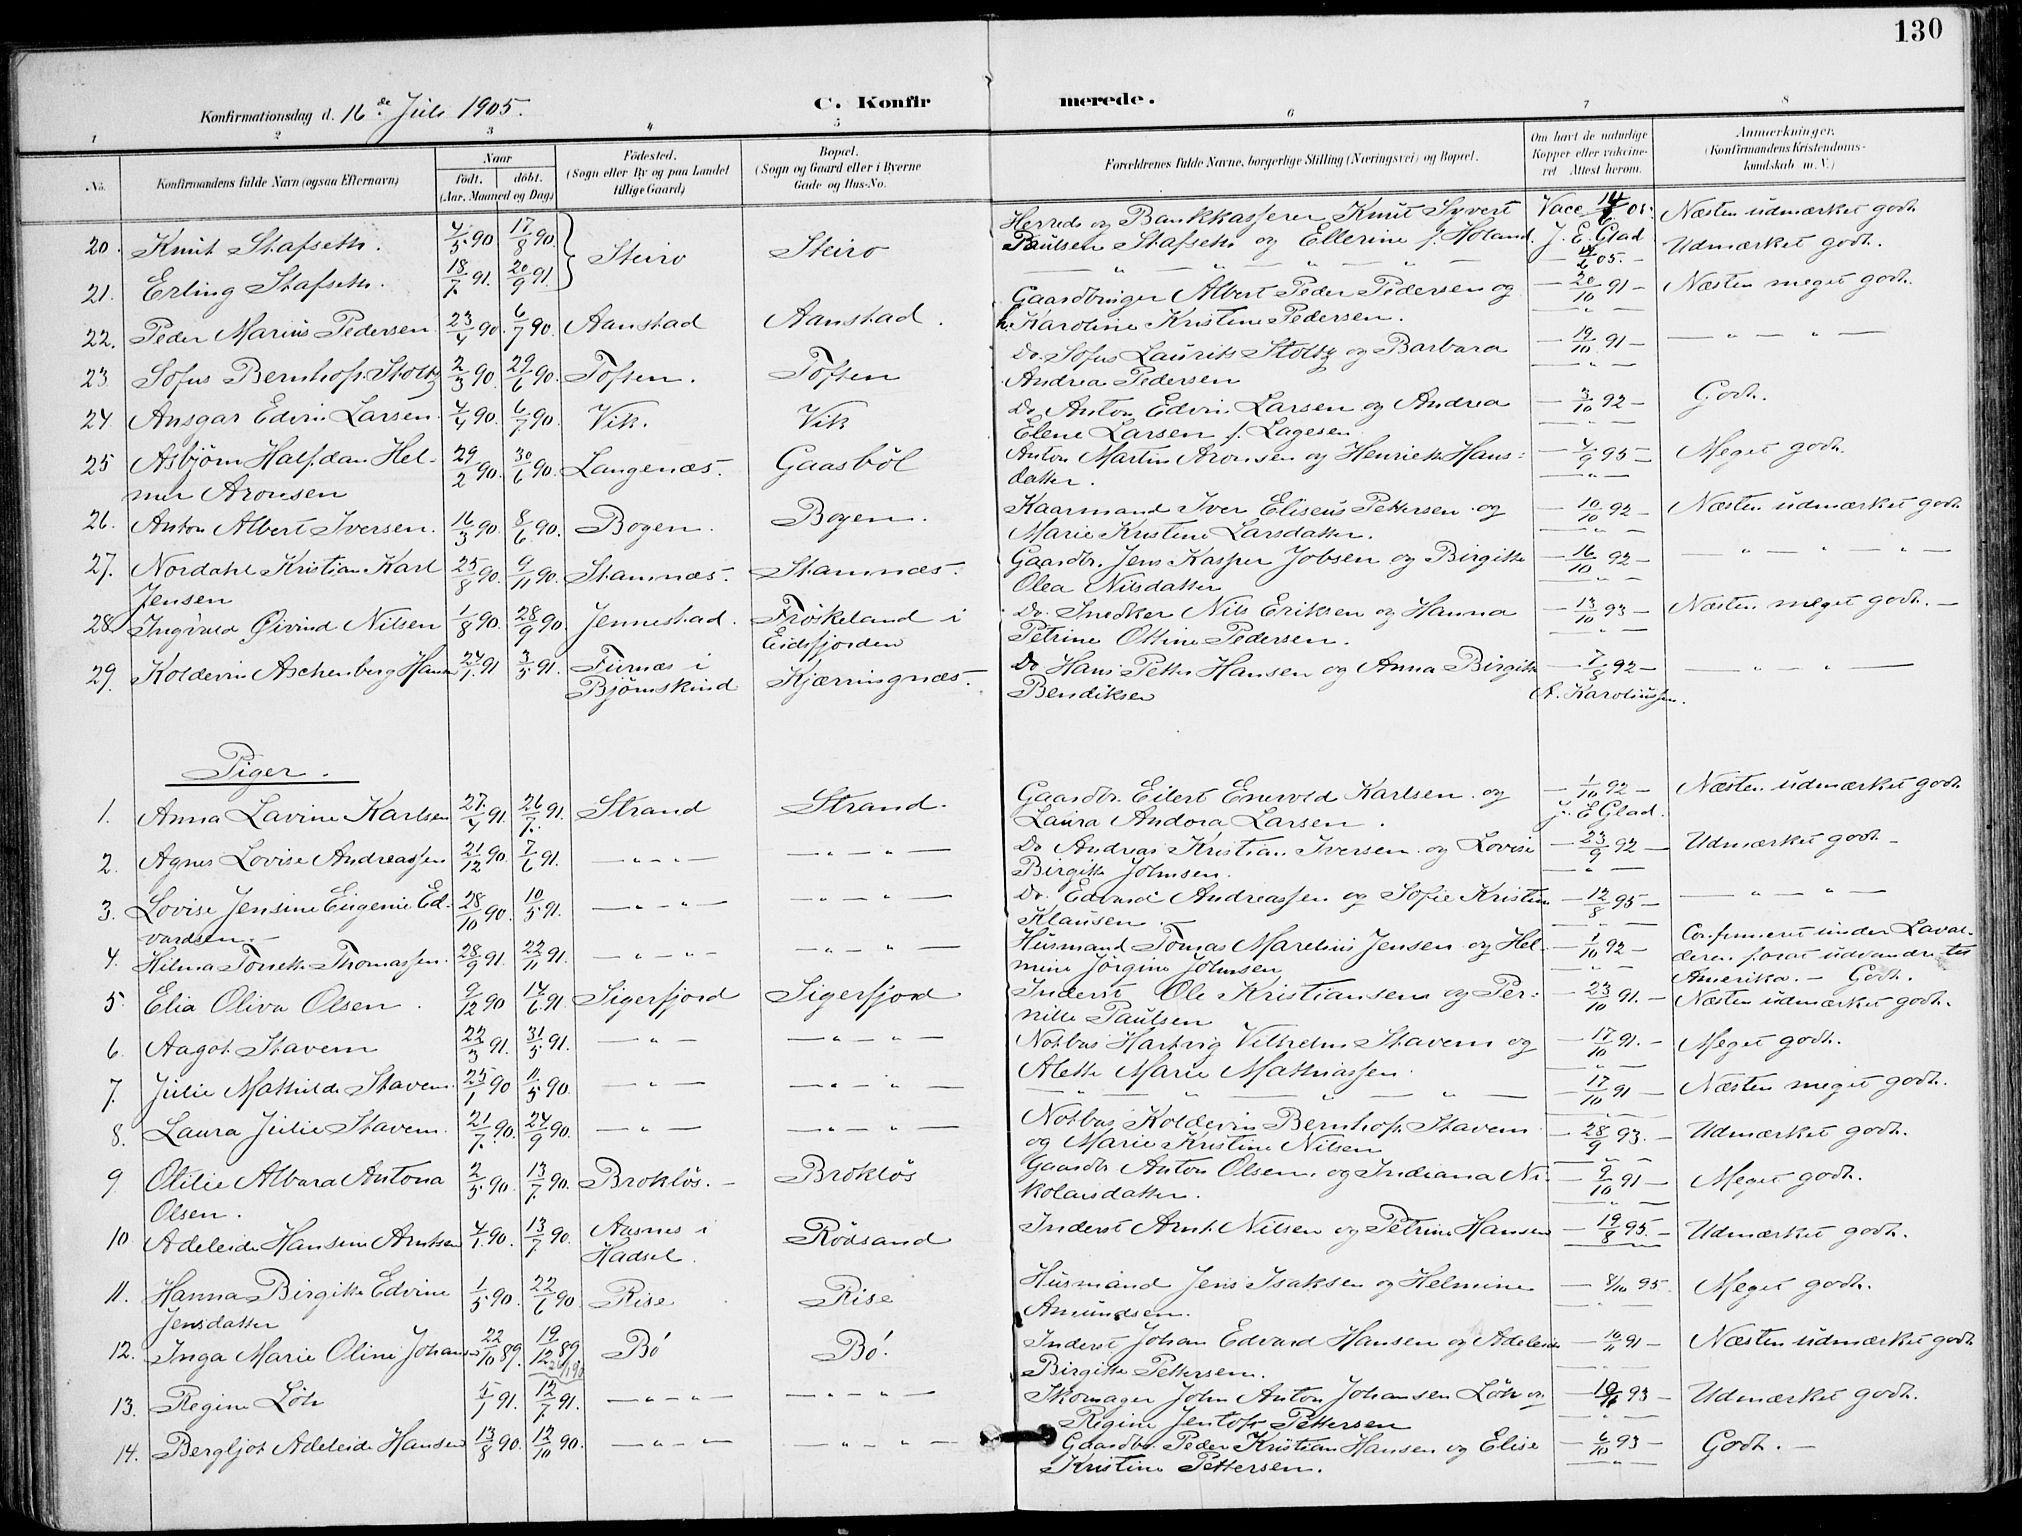 130
Konfirmationsdag d. 16de Juli 1905.
C. Konfirmerede.
1 2 3 4 5 6 7 8
No. Konfirmandens fulde Navn (ogsaa Efternavn) Naar født. døbt. (Aar, Maaned og Dag) Fødested. (Sogn eller By og paa Landet tillige Gaard) Bopæl. (Sogn og Gaard eller i Byerne Gade og Hus-No. Forældrenes fulde Navne, borgerlige Stilling (Næringsvei) og Bopæl. Om havt de naturlige Kopper eller vaccineret Attest herom. Anmerkninger. (Konfirmandens Kristendomskundskab m. V.)
20. Knut Stafseth. 4/5 90 17/8 90. Steiro Steiro Herreds og Bankkasserer Knut Syvert Vacc 14/6 05. Næsten udmærket godt
Paulsen Stafseth og Ellerine f. Holand. J. E. Glad
21. Erling Stafseth. 18/7 91. 20/9 91. — " — " — " — 14/6 05. — Udmærket godt.
22. Peder Marius Pedersen 23/4 90. 6/7 90. Aanstad Aanstad. Gaardbruger Albert Peder Pedersen og — 20/10 91 — Næsten meget godt.
h. Karoline Kristine Pedersen. — " —
23 Sofus Bernhoft Stoltz 2/3 90. 29/6 90. Toften. Toften Do. Sofus Laurits Stoltz og Barbara — 19/10 91 — — " — " —
Andrea Pedersen — " —
24. Ansgar Edvin Larsen. 4/4 90. 6/7 90. Vik. Vik Do Anton Edvin Larsen og Andrea — 3/10 92 — Godt.
Elene Larsen f. Lagesen — " —
25 Asbjørn Halfdan Hel- 29/2 90. 30/6 90. Langenæs. Gaasbøl Anton Martin Aronsen og Henrikke Hans- — 4/9 95 — Meget godt.
mer Aronsen datter. — " —
26. Anton Albert Iversen. 16/3 90. 8/6 90. Bogen. Bogen. Kaarmand Iver Eliseus Pettersen og — 10/10 92 — Næsten udmærket godt
Marie Kristine Larsdatter. — " —
27. Nordahl Kristian Karl 25/8 90. 9/11 90. Stamnæs. Stamnæs. Gaardbr. Jens Kasper Jobsen og Birgitte — 16/10 92 — — " — " — " —
Jensen Olea Nilsdatter — " —
28. Ingvald Øivind Nilsen 1/8 90. 28/9 90. Jennestad. Frøskeland i Do. Snedker Nils Eriksen og Hanna — 13/10 93 — Næsten meget godt. —
Eidsfjorden Petrine Ottine Pedersen. — " —
29. Koldevin Aschenberg Hansen 24/1 91 3/5 91. Furnæs i Kjærringnæs. Do Hans Petter Hansen og Anna Birgitte — 7/8 92 — — " — " —
Bjørnskind Bendiksen A. Karoliussen.
Piger.
1. Anna Lavine Karlsen 27/4 91. 26/7. 91. Strand Strand. Gaardbr. Eilert Enevold Karlsen og — 1/10 92 — Næsten udmærket godt
Laura Andora Larsen. J. E Glad.
2. Agnes Lovise Andreassen 21/12 90. 7/6 91. — " — " — — " — " — Do Andreas Kristian Iversen og Lovise — 23/9 92 — Udmærket godt —
Birgitte Johnsen. — " —
3. Lovise Jensine Eugenie Ed- 28/10 90. 10/5 91. — " — " — — " — " — Do. Edvard Andreassen og Sofie Kristine — 12/8 95 — — " — " —
vardsen. — Klausen. — — " —
4. Hilma Tonette Thomassen. 28/9 91. 22/11 91. — " — " — — " — " — Husmand Tomas Marelius Jensen og Hel- — 1/10 92 — Confirmeret under
mine Jørgine Johnsen — " — Amerika. — Godt.
5. Elia Oliva Olsen. 9/12 90 14/6 91. Sigerfjord Sigerfjord Inderst Ole Kristiansen og Per- — 23/10 91. — Næsten udmærket godt.
nille Paulsen
6. Aagot Stavem 22/3 91. 31/5 91. — " — — " — " — Notbas Hartvig Vilhelm Stavem og — 17/10 91. — Meget godt.
Alette Marie Mathiassen. — " —
7. Julie Mathilde Stavem. 25/1 90 11/5 90. — " — — " — " — — " — " — " — 17/10 91 — Næsten meget godt.
8. Laura Julie Stavem. 21/7. 90. 24/9 90. — " — — " — " — Notbas Koldevin Bernhoft Stavem — 28/9 93. — Udmærket godt.
og Marie Kristine Nilsen — " —
9. Otilie Albara Antona 2/5 90. 13/7 90. Brokløs. — Brokløs Gaardbr Anton Olsen og Indiana Ni- — 9/10 91 — Meget godt.
Olsen. kolaisdatter. — " —
10 Adeleide Hansine Arntsen 4/1 90. 13/7 90. Aasnes i Rødsand Inderst Arnt Nilsen og Petrine Hansen — 19/8 95. — Udmærket godt.
Hadsel.
11. Hanna Birgitte Edvine 1/5 90. 22/6 90. Rise Rise Husmand Jens Isaksen og Helmine — 8/10 95. Meget godt.
Jensdatter Amundsen. — " —
12. Inga Marie Oline Johansen 22/10 89. 19/12 89. Bø Bø. Inderst Johan Edvard Hansen og Adeleide — 10/11 91 — Næsten udmærket godt
Birgitte Pettersen. — " —
13. Regine Løh 5/1 91. 12/7. 91. — " — " — — " — " — Skomager John Anton Johansen Løh og — 93 — Udmærket godt.
Regine Jentoft Pettersen — " —
14. Bergljot Adeleide Hansen 13/8 90. 12/10 90. — " — " — — " — " — Gaardbr. Peder Kristian Hansen og Elise — 6/10 93 — Godt. —
Kristine Pettersen. — " —